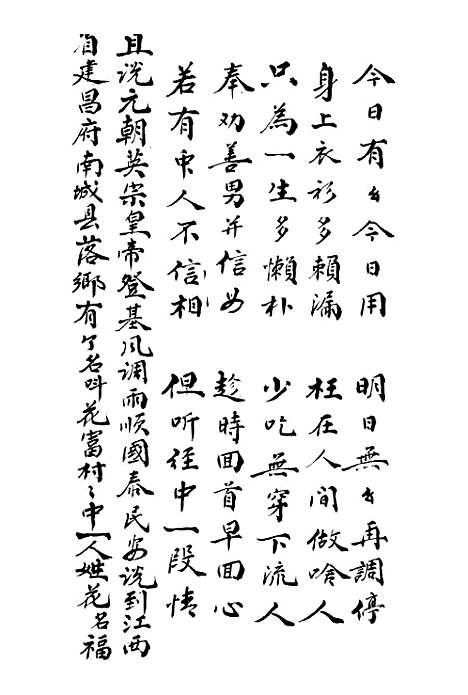 今日有々今日用 明日無々再調停
身上衣衫多賴漏 枉在人间做啥人
只為一生多懶朴 少吃無穿下流人
奉劝善男并信女 趁時回首早回心
若有中人不信相 但听径中一段情
且说元朝英宗皇帝登基风调雨顺國泰民安说到江西
省建昌府南城县落鄉有个名叫花富村々中一人姓花名福